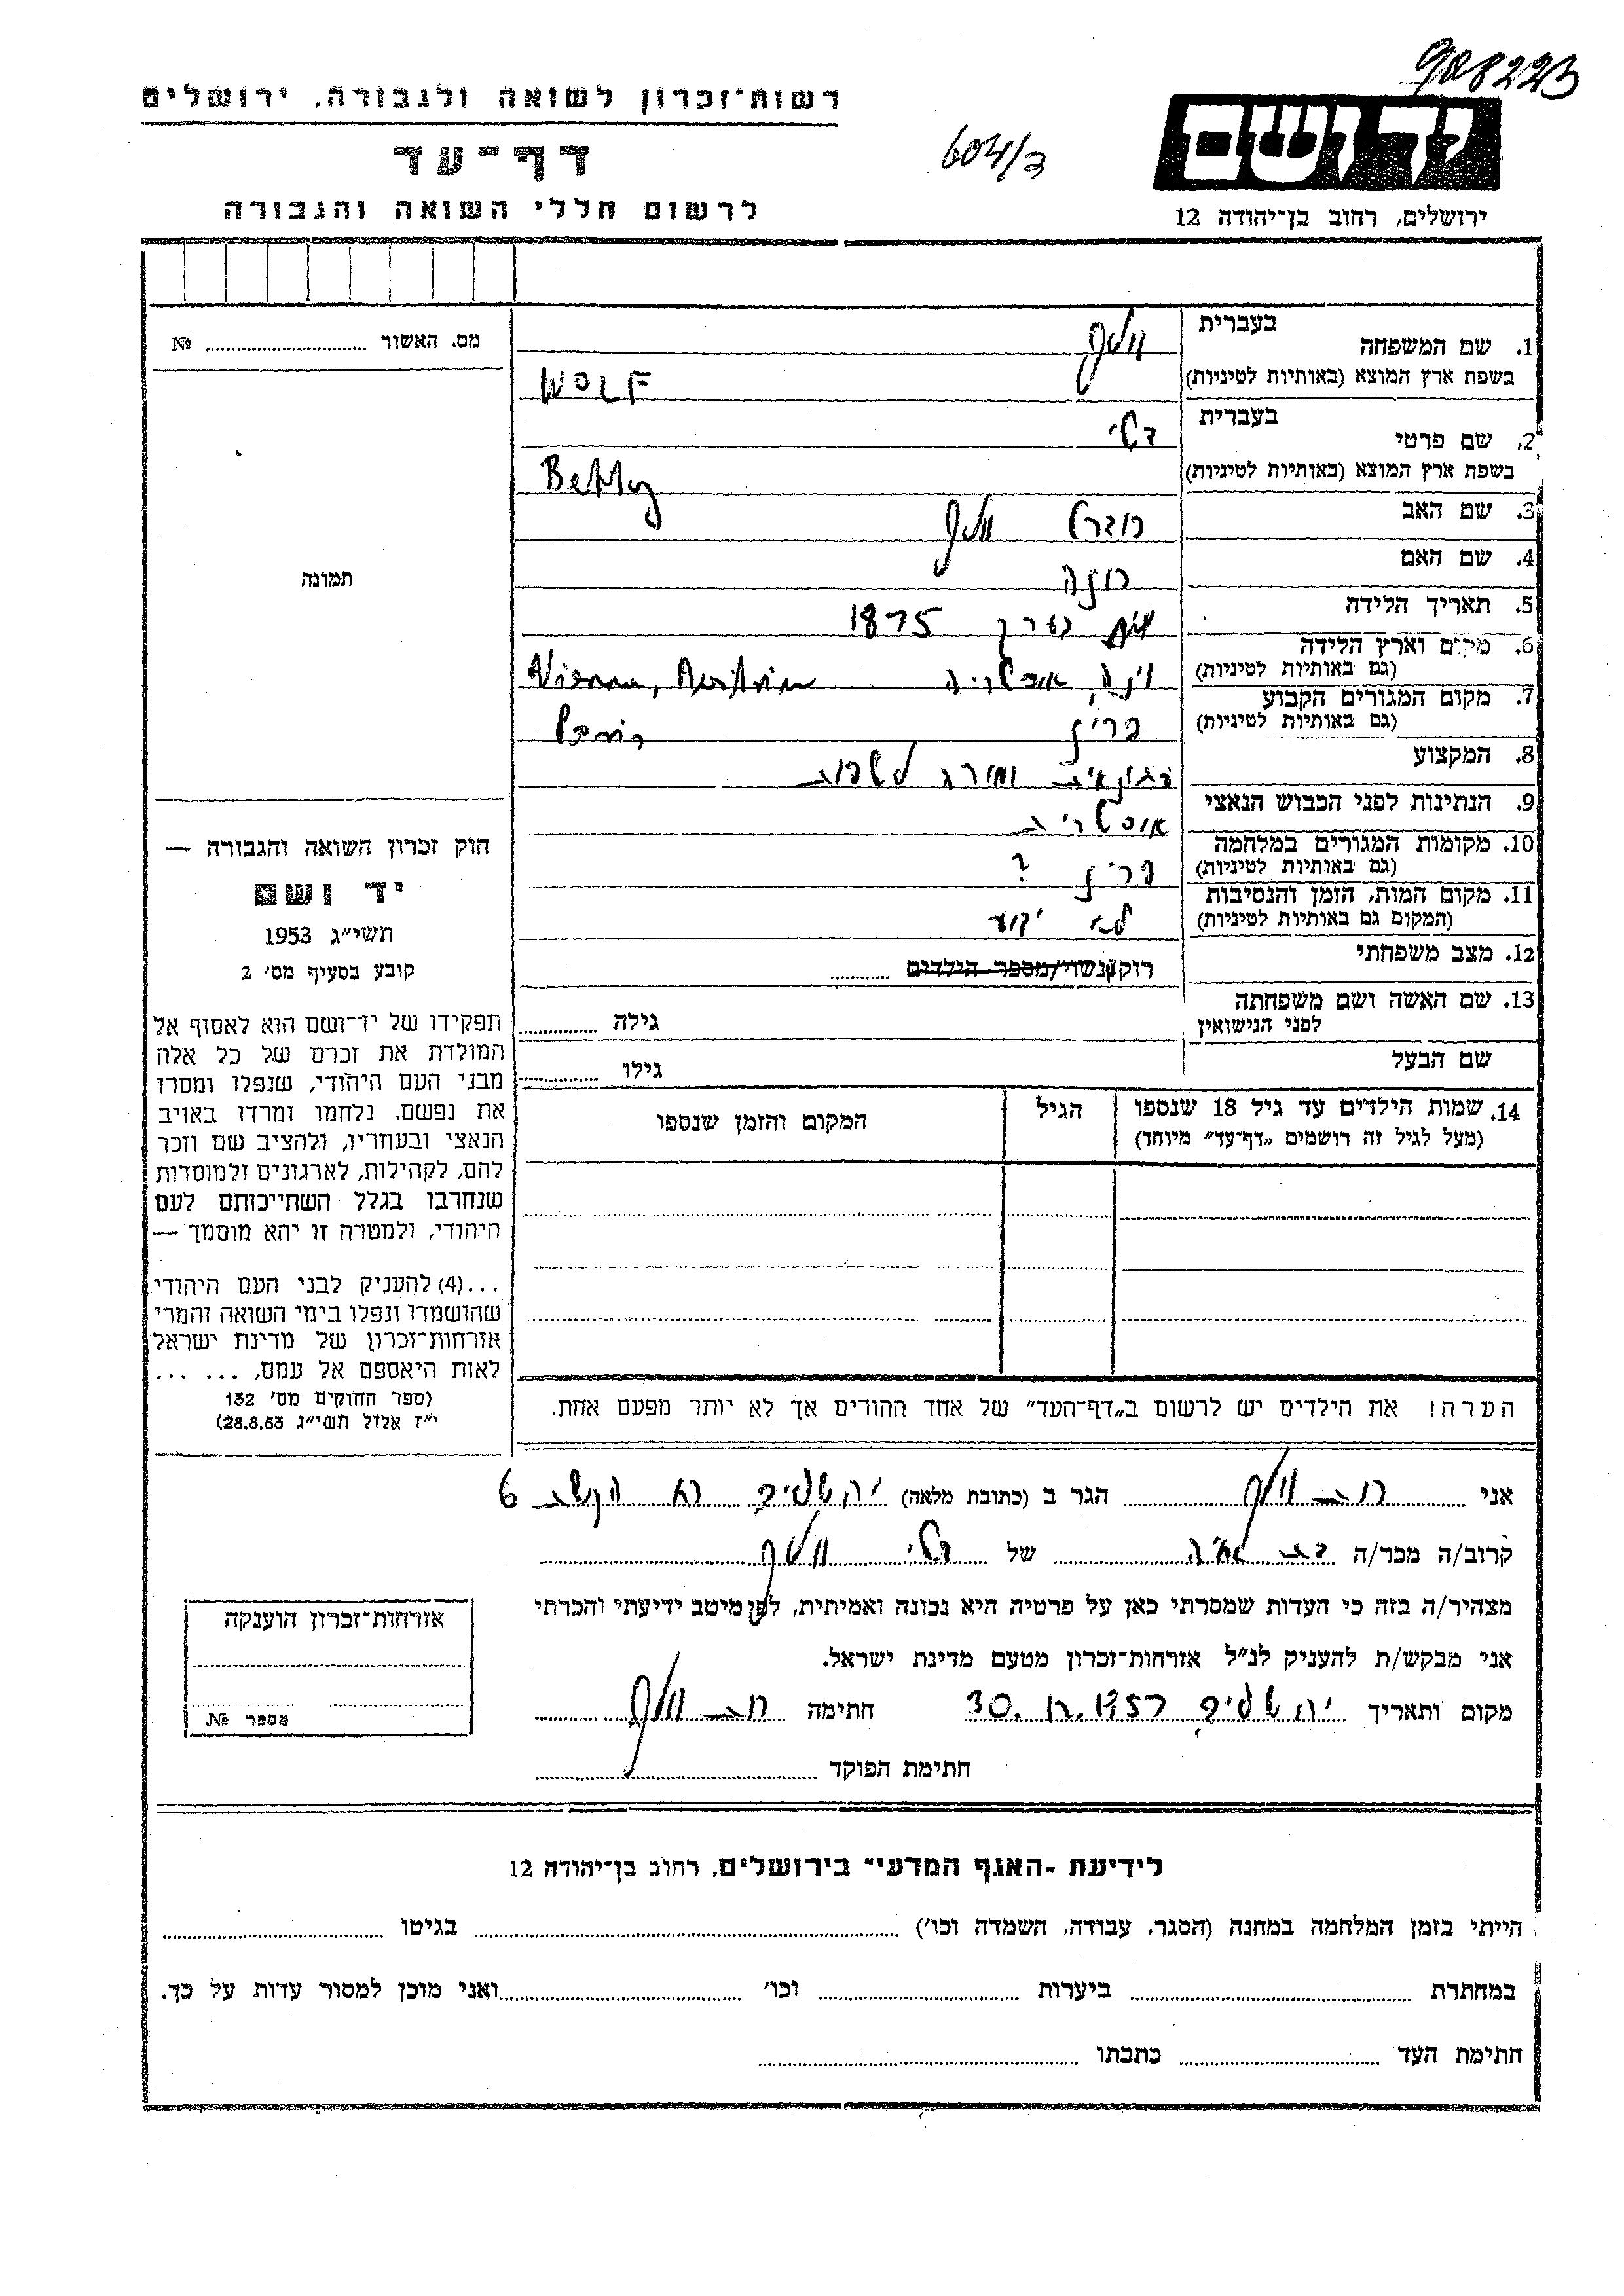 908223
רשות־זכרון לשואה ולגבורה, ירושלים
דף־עד
לרשום חללי השואה והגבורה
604/ד
יד ושם
ירושלים, רחוב בן־יהודה 12
מס. האשור № 
בעברית
1. שם המשפחה וולף
בשפת ארץ המוצא (באותיות לטיניות) WOLF
בעברית
2. שם פרטי בטי
בשפת ארץ המוצא (באותיות לטיניות) Betty
3. שם האב רוברט וולף
4. שם האם רוזה
5. תאריך הלידה 1875
6. מקום וארץ הלידה וינה, אוסטריה Vienna, Austria
(גם באותיות לטיניות)
7. מקום המגורים הקבוע פריז Paris
(גם באותיות לטיניות)
8. המקצוע ומורה לשפות
9. הנתינות לפני הכבוש הנאצי אוסטרית
10. מקומות המגורים במלחמה פריז ?
(גם באותיות לטיניות)
11. מקום המות, הזמן והנסיבות לא ידוע
(המקום גם באותיות לטיניות)
12. מצב משפחתי רוק/נשוי/מספר הילדים
13. שם האשה ושם משפחתה גילה
לפני הנישואין
שם הבעל גילו
14. שמות הילדים עד גיל 18 שנספו הגיל המקום והזמן שנספו
(מעל לגיל זה רושמים „דף־עד” מיוחד)
תמונה
חוק זכרון השואה והגבורה —
יד ושם
תשי״ג 1953
קובע בסעיף מס׳ 2
תפקידו של יד־ושם הוא לאסוף אל
המולדת את זכרם של כל אלה
מבני העם היהודי, שנפלו ומסרו
את נפשם, נלחמו ומרדו באויב
הנאצי ובעוזריו, ולהציב שם וזכר
להם, לקהילות, לארגונים ולמוסדות
שנחרבו בגלל השתייכותם לעם
היהודי, ולמטרה זו יהא מוסמך —
...(4) להעניק לבני העם היהודי
שהושמדו ונפלו בימי השואה והמרי
אזרחות־זכרון של מדינת ישראל
לאות היאספם אל עמם, ... ...
(ספר החוקים מס׳ 132
י״ז אלול תשי״ג 28.8.53)
הערה! את הילדים יש לרשום ב„דף־העד” של אחד ההורים אך לא יותר מפעם אחת.
אני רות וולף הגר ב (כתובת מלאה) ירושלים 6
קרוב/ה מכר/ה בת אחיה של בטי וולף
מצהיר/ה בזה כי העדות שמסרתי כאן על פרטיה היא נכונה ואמיתית, לפי מיטב ידיעתי והכרתי
אני מבקש/ת להעניק לנ״ל אזרחות־זכרון מטעם מדינת ישראל.
מקום ותאריך ירושלים 30. 12. 1957 חתימה רות וולף
חתימת הפוקד
אזרחות־זכרון הוענקה
מספר №
לידיעת „האגף המדעי” בירושלים, רחוב בן־יהודה 12
הייתי בזמן המלחמה במחנה (הסגר, עבודה, השמדה וכו׳) בגיטו
במחתרת ביערות וכו׳ ואני מוכן למסור עדות על כך.
חתימת העד כתבתו